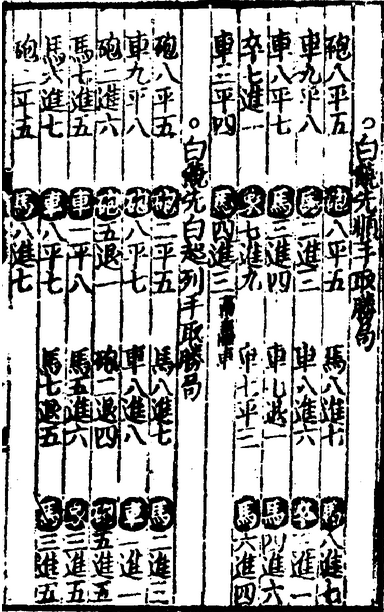 白饒先順手取勝局
砲八平五 砲八平五 馬八進七 馬八進七
車九平八 馬二進三 車八進六 卒三進一
車八平七 馬三進四 車七退一 馬四進六
卒七進一 象七進九 平三 馬六進四
車二平四 馬四進三
白饒先白起列手取勝局
砲八平五 砲二平五 馬八進七 馬二進三
車九平八 砲八平七 車八進八 車一進一
砲二進六 砲五退一 砲二退四 砲五進五
馬七進五 車一平八 馬五進六 象三進五
馬八進七 車八平七 馬七退五 馬三進五
砲二平五 馬八進七